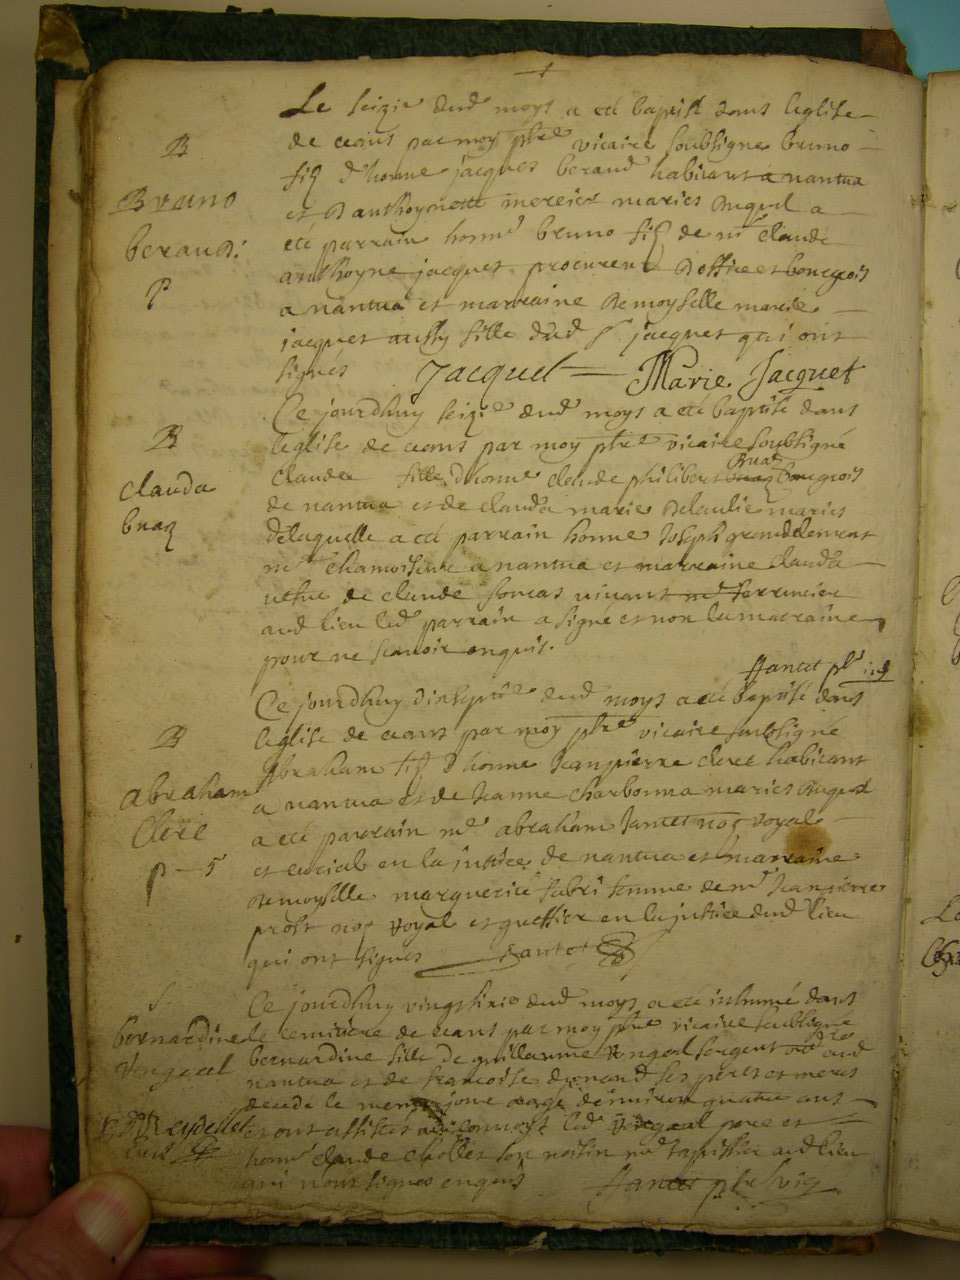 Le seizie dud moys a ete baptise dans leglise
de ceans par moy pbre vicaire soubsigne bruno
B
fiz dhonne jacques beraud habitant a nantua
Bruno
et danthoynette mercier maries duquel a
beraud.
ete parrain honne bruno fiz de mr claude
P
anthoyne jacquet procureur doffice et bourgeois
a nantua et marraine demoyselle marie
jacquet aussy fille dud sr jacquet qui ont
signés Jacquet Marie Jacquet
Ce jourdhuy seize dud moys a ete baptisé dans
B
leglise de ceans par moy pbre vicaire soubsigné
clauda
claudea fille dhonne claude philibert Buaz bourgeois
buaz
de nantua et de clauda marie Delaulie maries
de laquelle a ete parrain honne Joseph grandclement
mr chamoiseur a nantua et marraine clauda
vefve de claude vivant mr
aud lieu led parrain a signé et non la marraine
pour ne scavoir enquis.
Jantet pbre
Ce jourdhuy dixseptie dud moys a ete baptisé dans
B
leglise de ceans par moy pbre vicaire soubsigné
abraham
Abraham fiz dhonne Jeanpierre clere habitant
Clere
a nantua et de Jeanne Charbonna maries duquel
a ete parrain mr abraham Jantet nore royal
P 5
et curial en la justice de nantua et marraine
demoyselle marguerite fabri femme de mr Jeanpierre
prost nore royal et greffier en la justice dud lieu
qui ont signes Jantet
S.
Ce jourdhuy vingtsixie dud moys a ete inhumé dans
bernardine
le cemitiere de ceans par moy pbre vicaire soubsigné
Vingeal
bernardine fille de guillaume sergent aud
nantua et de francoise ses peres et meres
decede le mesme jour aagé denviron quatre ans
Reydellet
et ont assistes au convoy led pere et
curé
honne claude chollet son voisin mr tapissier aud lieu
qui nont signes enquis Jantet pbre vic